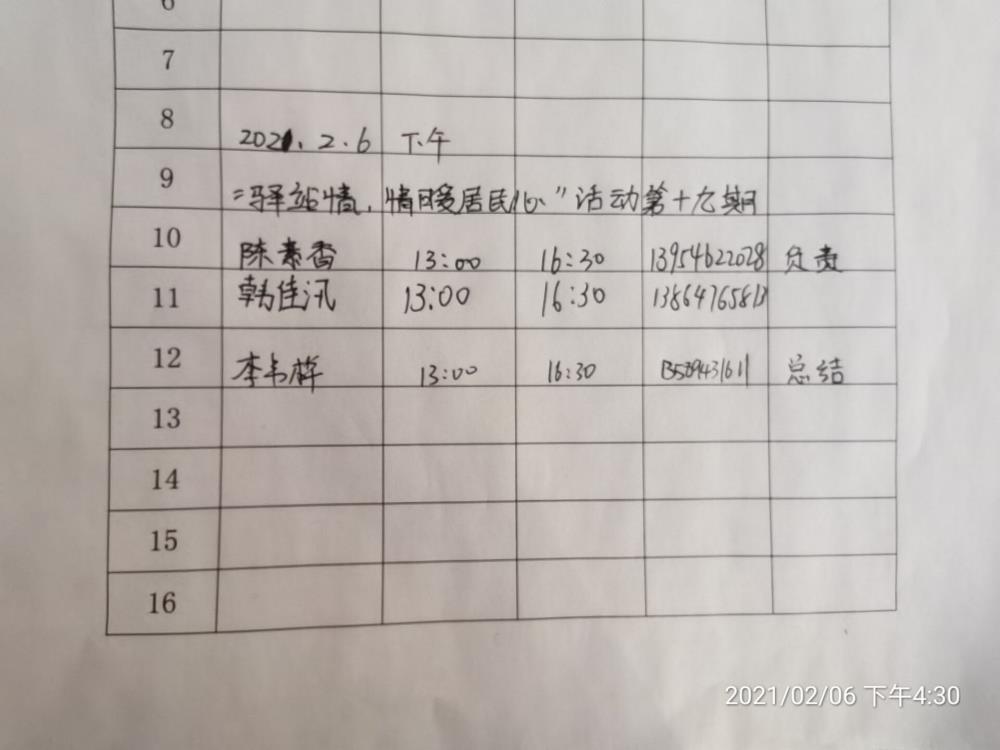 6
7
8 2021.2.6 下午
9 “驿站情，情暖居民心”活动第十九期
10 陈素香 13:00 16:30 13954622028 负责
11 韩佳汛 13:00 16:30 13864765813
12 李韦样 13:00 16:30 总结
13
14
15
16
2021/02/06 下午4:30